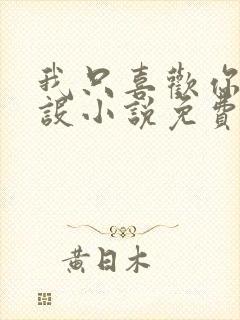 我只喜歡你
設小說免費
黃日木